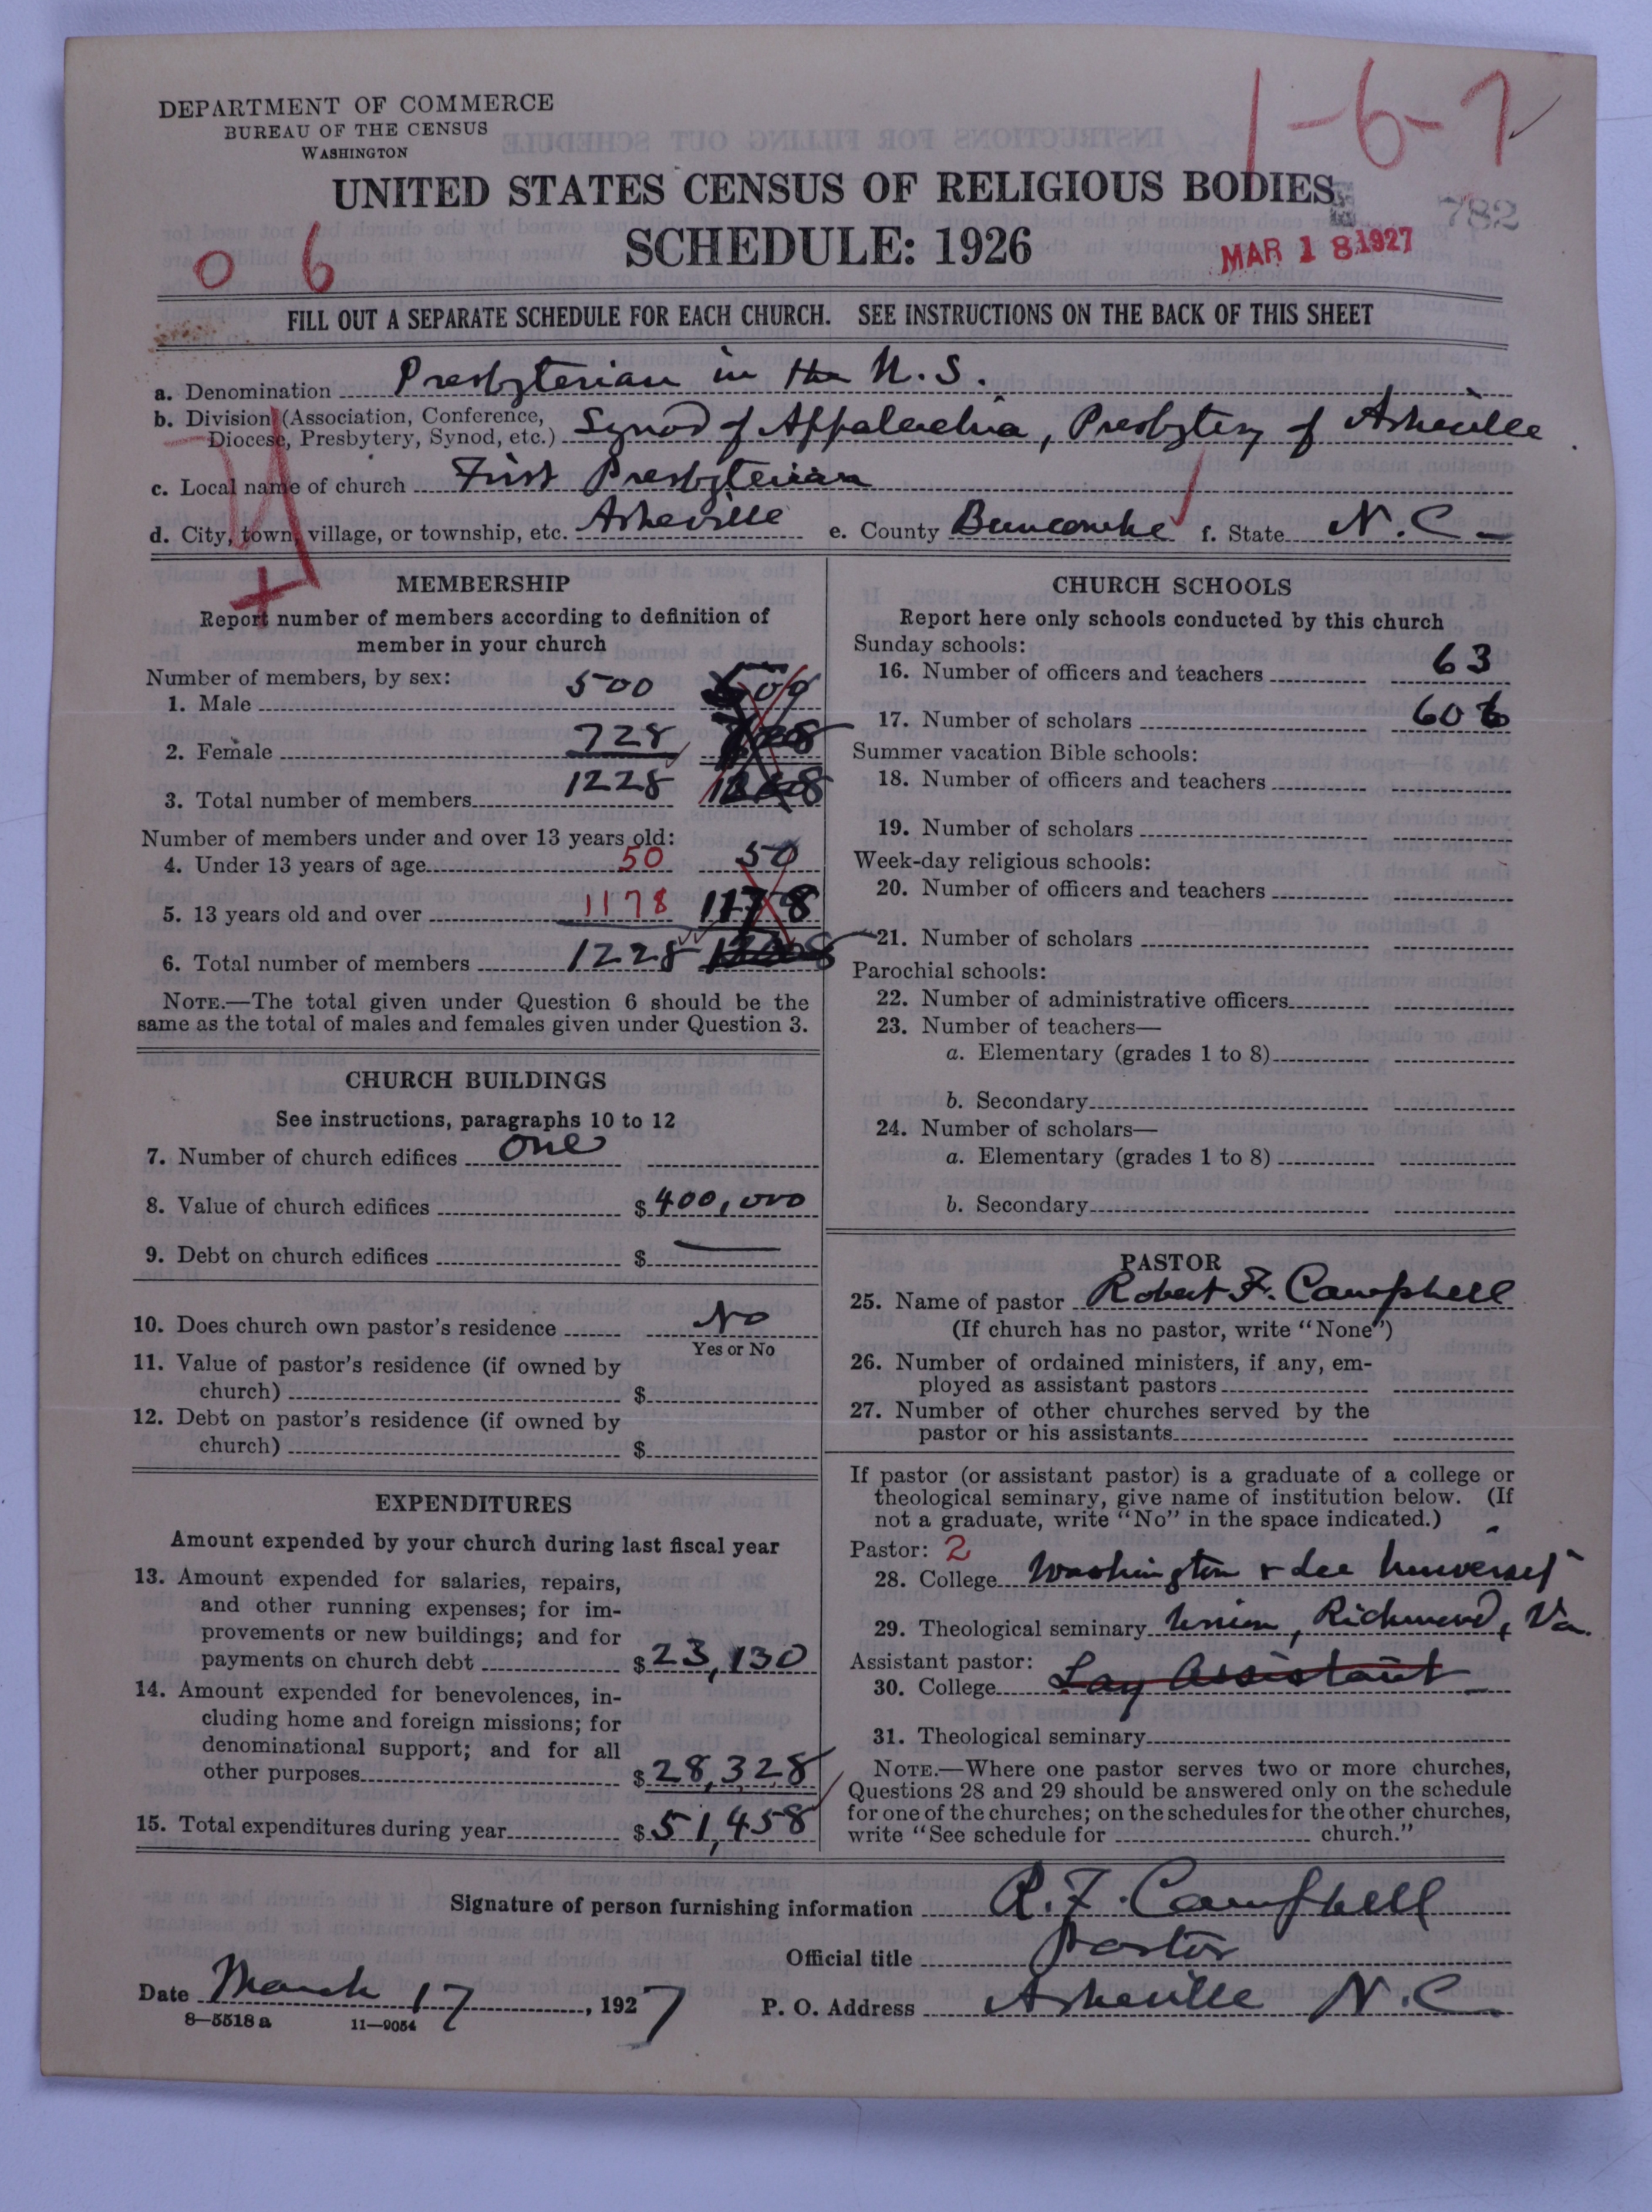 DEPARTMENT OF COMMERCE
BUREAU OF THE CENSUS
WASHINGTON
1-6-7
UNITED STATES CENSUS OF RELIGIOUS BODIES
782
SCHEDULE: 1926
MAR 18 1927
0 6
FILL OUT A SEPARATE SCHEDULE FOR EACH CHURCH. SEE INSTRUCTIONS ON THE BACK OF THIS SHEET
a. Denomination Presbyterian in the U.S.
b. Division (Association, Conference,
Diocese, Presbytery, Synod, etc.) Synod of Appalachia, Presbytery of Asheville
c. Local name of church First Presbyterian
d. City, town, village, or township, etc. Asheville e. County Buncombe f. State N.C.
MEMBERSHIP
Report number of members according to definition of
member in your church
Number of members, by sex:
1. Male 500 500
2. Female 728
3. Total number of members 1228
Number of members under and over 13 years old:
4. Under 13 years of age 50 50
5. 13 years old and over 1178 1178
6. Total number of members 1228
NOTE.—The total given under Question 6 should be the
same as the total of males and females given under Question 3.
CHURCH BUILDINGS
See instructions, paragraphs 10 to 12
7. Number of church edifices one
8. Value of church edifices $400,000
9. Debt on church edifices $ —
10. Does church own pastor's residence No
Yes or No
11. Value of pastor's residence (if owned by
church) $
12. Debt on pastor's residence (if owned by
church) $
EXPENDITURES
Amount expended by your church during last fiscal year
13. Amount expended for salaries, repairs,
and other running expenses; for im-
provements or new buildings; and for
payments on church debt $23,130
14. Amount expended for benevolences, in-
cluding home and foreign missions; for
denominational support; and for all
other purposes $28,328
15. Total expenditures during year $51,458
CHURCH SCHOOLS
Report here only schools conducted by this church
Sunday schools:
16. Number of officers and teachers 63
17. Number of scholars 606
Summer vacation Bible schools:
18. Number of officers and teachers
19. Number of scholars
Week-day religious schools:
20. Number of officers and teachers
21. Number of scholars
Parochial schools:
22. Number of administrative officers
23. Number of teachers—
a. Elementary (grades 1 to 8)
b. Secondary
24. Number of scholars—
a. Elementary (grades 1 to 8)
b. Secondary
PASTOR
25. Name of pastor Robert F. Campbell
(If church has no pastor, write "None")
26. Number of ordained ministers, if any, em-
ployed as assistant pastors
27. Number of other churches served by the
pastor or his assistants
If pastor (or assistant pastor) is a graduate of a college or
theological seminary, give name of institution below. (If
not a graduate, write "No" in the space indicated.)
Pastor: 2
28. College Washington & Lee University
29. Theological seminary Union, Richmond, Va.
Assistant pastor:
30. College Lay Assistant
31. Theological seminary
NOTE.—Where one pastor serves two or more churches,
Questions 28 and 29 should be answered only on the schedule
for one of the churches; on the schedules for the other churches,
write "See schedule for church."
Signature of person furnishing information R.F. Campbell
Official title Pastor
Date March 17, 1927 P. O. Address Asheville N.C.
8—5518 a 11—9054